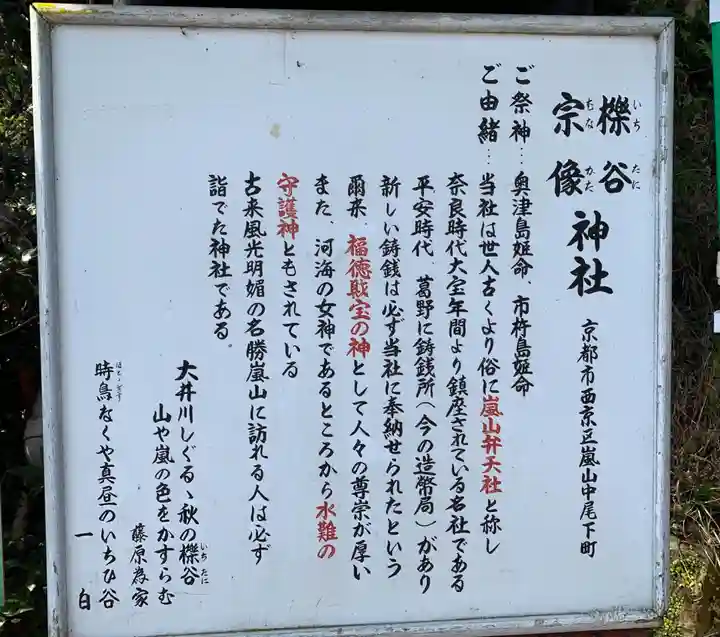 櫟谷
いちたに
宗像
むなかた
神社
京都市西京区嵐山中尾下町
ご祭神…奥津島姫命、市杵島姫命
ご由緒…当社は世人古くより俗に嵐山弁天社と称し
奈良時代大宝年間より鎮座されている名社である
平安時代、葛野に鋳銭所(今の造幣局)があり
新しい鋳銭は必ず当社に奉納せられたという
爾来、福徳財宝の神として人々の尊崇が厚い
また、河海の女神であるところから水難の
守護神ともされている
古来風光明媚の名勝嵐山に訪れる人は必ず
詣でた神社である。
大井川しぐるゝ秋の櫟谷
いちたに
山や嵐の色をかすらむ
藤原為家
時鳥なくや真昼のいちひ谷
一白